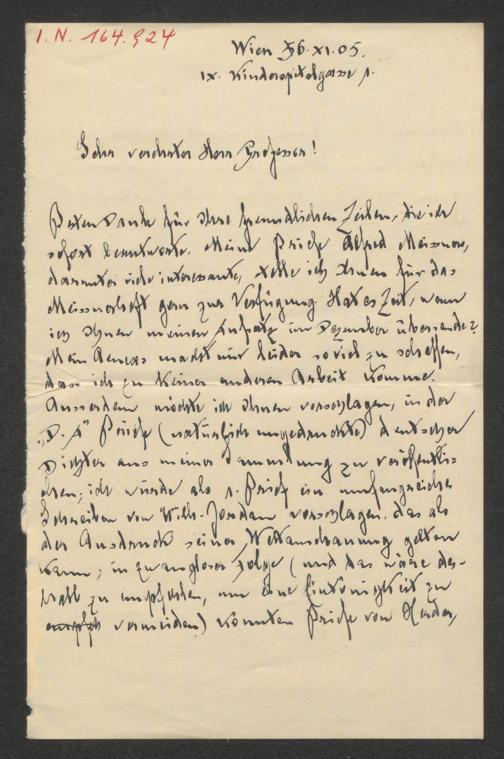 I. N. 164.924
Wien 26.XI.05.
IX. Kinderspitalgasse 1.
Sehr verehrter Herr Professor!
Besten Dank für Ihre freundlichen Zeilen, die ich
sofort beantworte. Meine Briefe Alfred Meissners,
darunter viele interessante, stelle ich Ihnen für das
Meissnerheft gern zur Verfügung. Hat es Zeit, wenn
ich Ihnen meinen Aufsatz im Dezember übersende?
Mein macht mir leider so viel zu schaffen,
dass ich zu keiner anderen Arbeit komme.
Ausserdem möchte ich Ihnen vorschlagen, in der
„D. A" Briefe (natürlich ungedruckte) deutscher
Dichter aus meiner Sammlung zu veröffentli-
chen; ich würde als 1. Brief ein umfangreiches
Schreiben von Wilh. Jordan vorschlagen, das als
der Ausdruck seiner Weltanschauung gelten
kann; in zwangloser Folge (und das wäre des-
halb zu empfehlen, um eine Eintönigkeit zu
empfeh vermeiden) könnten Briefe von Herder,